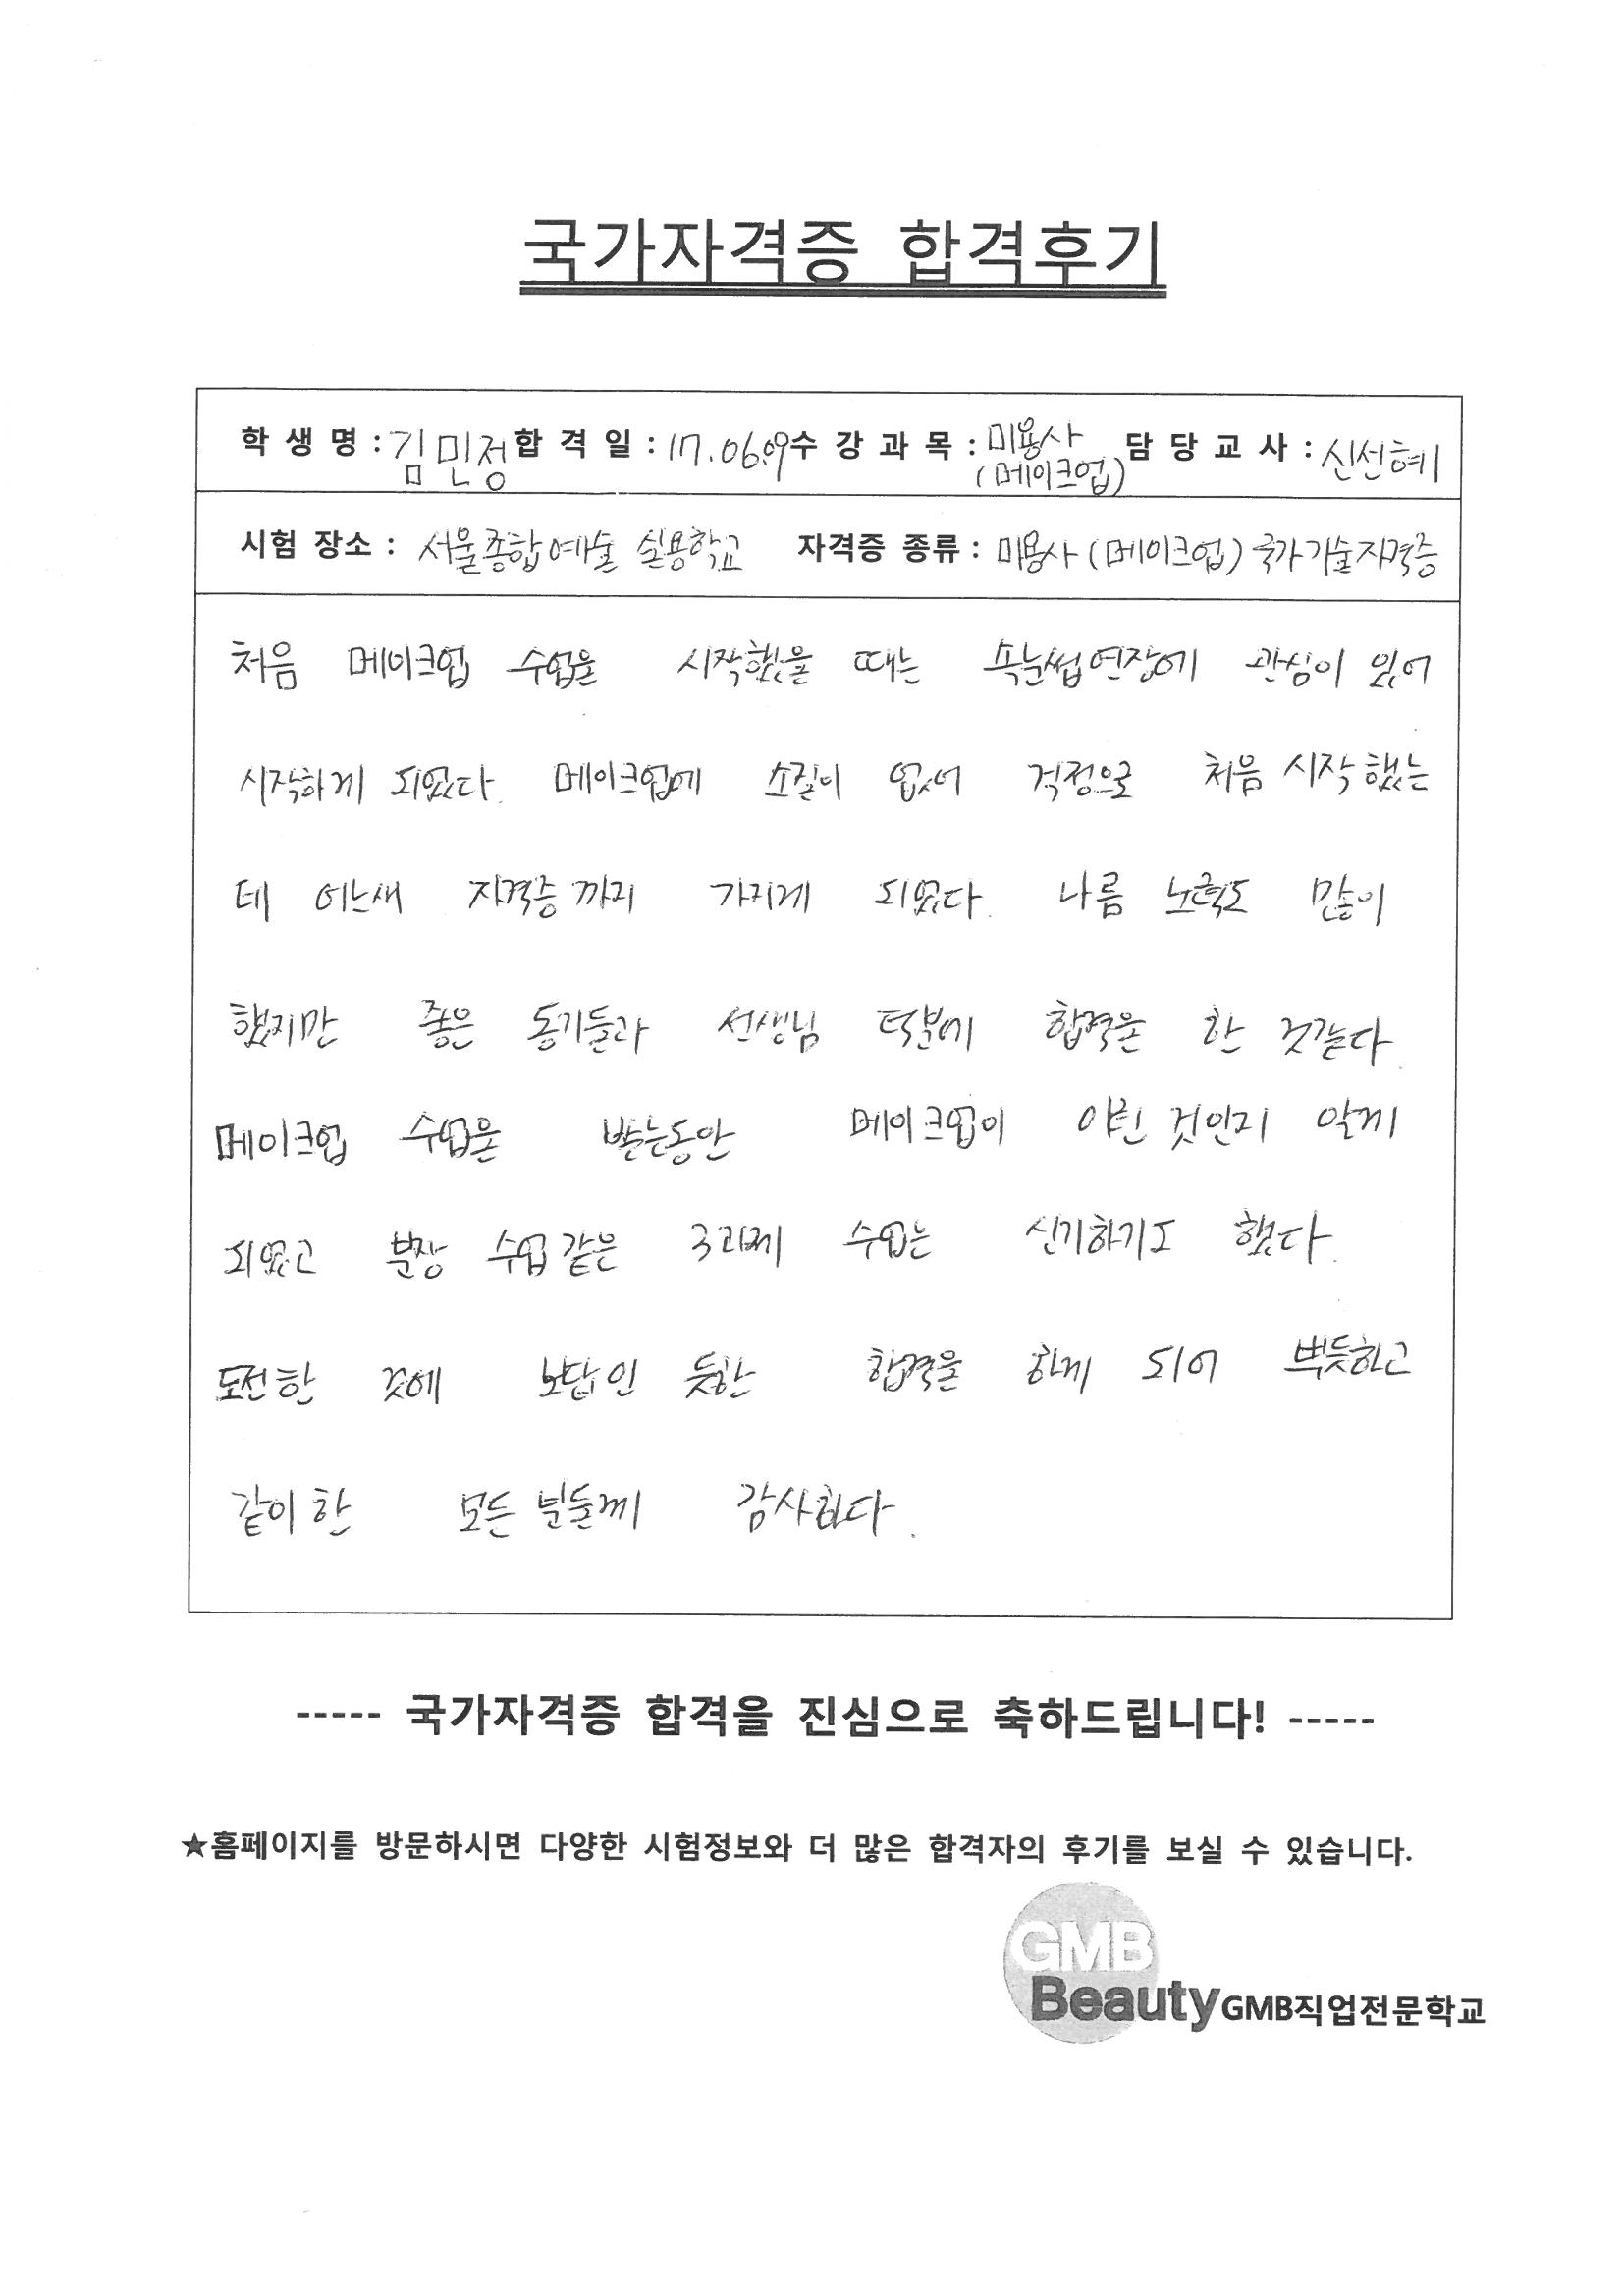 국가자격증 합격후기
학 생 명 : 김민정 합 격 일 : 17.06.09 수 강 과 목 : 미용사 (메이크업) 담 당 교 사 : 신선혜
시험 장소 : 서울종합예술 실용학교 자격증 종류 : 미용사 (메이크업) 국가기술자격증
처음 메이크업 수업을 시작했을 때는 속눈썹연장에 관심이 있어
시작하게 되었다. 메이크업에 소질이 없어 걱정으로 처음 시작했는
데 어느새 자격증까지 가지게 되었다. 나름 노력도 많이
했지만 좋은 동기들과 선생님 덕분에 합격을 한 것같다.
메이크업 수업을 받는동안 메이크업이 어떤 것인지 알게
되었고 분장 수업같은 3과제 수업는 신기하기도 했다.
도전한 것에 보답인 듯한 합격을 하게 되어 뿌듯하고
같이 한 모든 분들께 감사하다.
----- 국가자격증 합격을 진심으로 축하드립니다! -----
★홈페이지를 방문하시면 다양한 시험정보와 더 많은 합격자의 후기를 보실 수 있습니다.
GMB
Beauty GMB직업전문학교